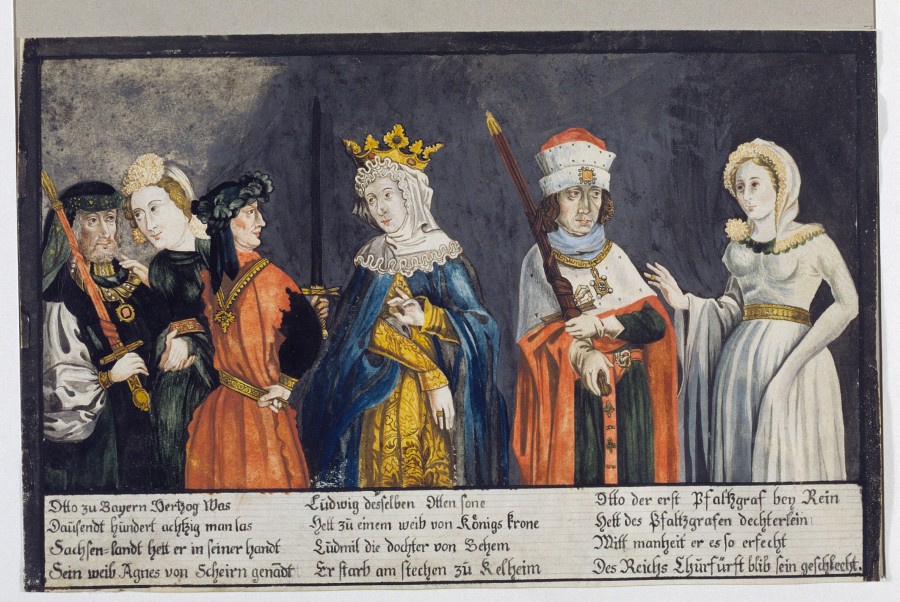 Otto zu Bayern Hertzog Was
Dausendt hundert achtzig man las
Sachsen-landt hett er in seiner handt
Sein weib Agnes von Scheirn genādt
Ludwig desselben Otten sone
Hett zu einem weib von Königs krone
Ludmil die dochter von Behem
Er starb am stechen zu Kelheim
Otto der erst Pfaltzgraf bey Rein
Hett des Pfaltzgrafen dechterlein
Mitt manheit er es so erfecht
Des Reichs Churfürst blib sein geschlecht.